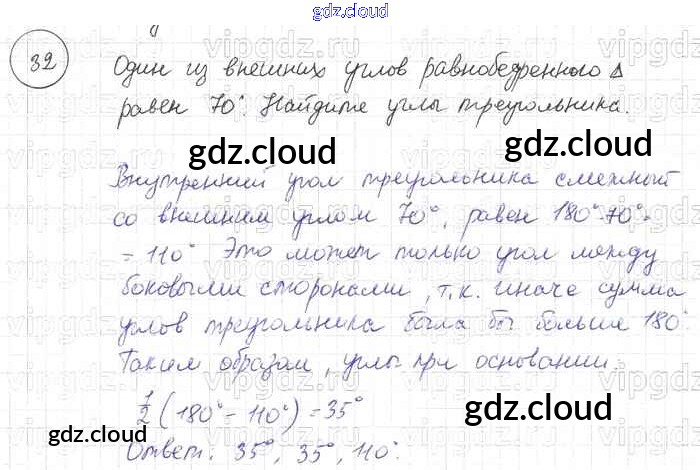 gdz.cloud
32
Один из внешних углов равнобедренного Δ
равен 70°. Найдите углы треугольника.
gdz.cloud
gdz.cloud
Внутренний угол треугольника смежный
со внешним углом 70°, равен 180°-70°=
= 110° Это может только угол между
боковыми сторонами, т.к. иначе сумма
углов треугольника была бы больше 180°
Таким образом, углы при основании:
1/2 (180° - 110°) = 35°
gdz.cloud
gdz.cloud
Ответ: 35°, 35°, 110°.